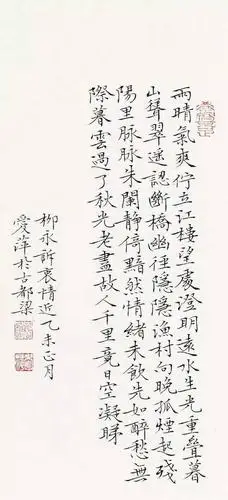 雨晴氣爽佇立江樓望處澄明遠水生光重疊暮
山聳翠遥認斷橋幽徑隱隱漁村向晚孤煙起殘
陽里脉脉朱闌靜倚黯然情緒未飲先如醉愁無
際暮雲過了秋光老盡故人千里竟日空凝睇
柳永訴衷情近乙未正月
愛萍於古都梁